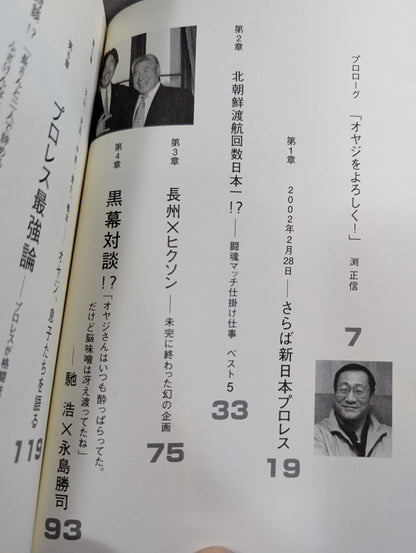 プロローグ 「オヤジをよろしく！」 渕 正信
7
第1章
2002年2月28日――さらば新日本プロレス
19
第2章
北朝鮮渡航回数日本一！？――闘魂マッチ仕掛け仕事 ベスト5
33
第3章
長州×ヒクソン――未完に終わった幻の企画
75
第4章
黒幕対談！？
「オヤジさんはいつも酔っぱらってた。
だけど脳味噌は冴え渡ってたね」
――馳 浩×永島勝司
93
プロレス最強論――プロレスが格闘
オヤジ、息子たちを語る
119